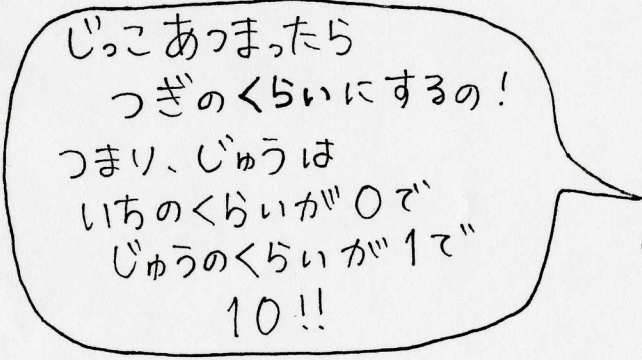 じっこあつまったら
つぎのくらいにするの！
つまり、じゅうは
いちのくらいが0で
じゅうのくらいが1で
10!!